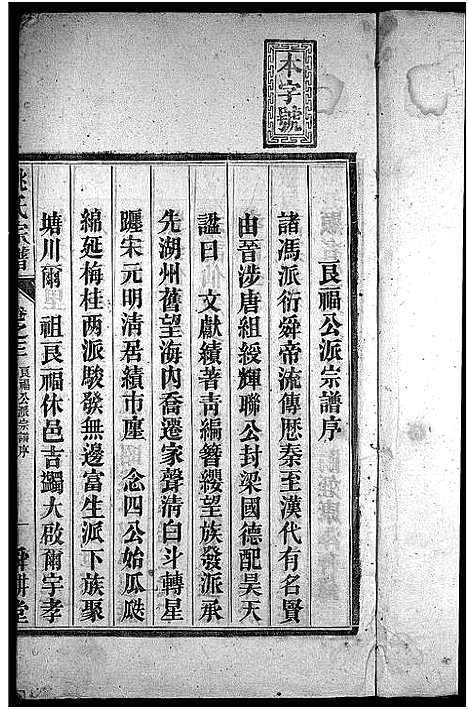 本字號
良福公派宗譜序
諸馮派衍舜帝流傳歷秦至漢代有名賢
由晉涉唐組綬輝聯公封梁國德配昊天
謚曰 文獻績著靑編簪纓望族發派承
先湖州舊望海內喬遷家聲清白斗轉星
躔宋元明清居績市廛 念四公始瓜瓞
綿延梅桂两派駿發無邊富生派下族聚
塘川爾 祖良福休邑吉蠲大啟爾宇孝
氏宗譜
卷之
良福公派宗譜序
一
舜耕堂